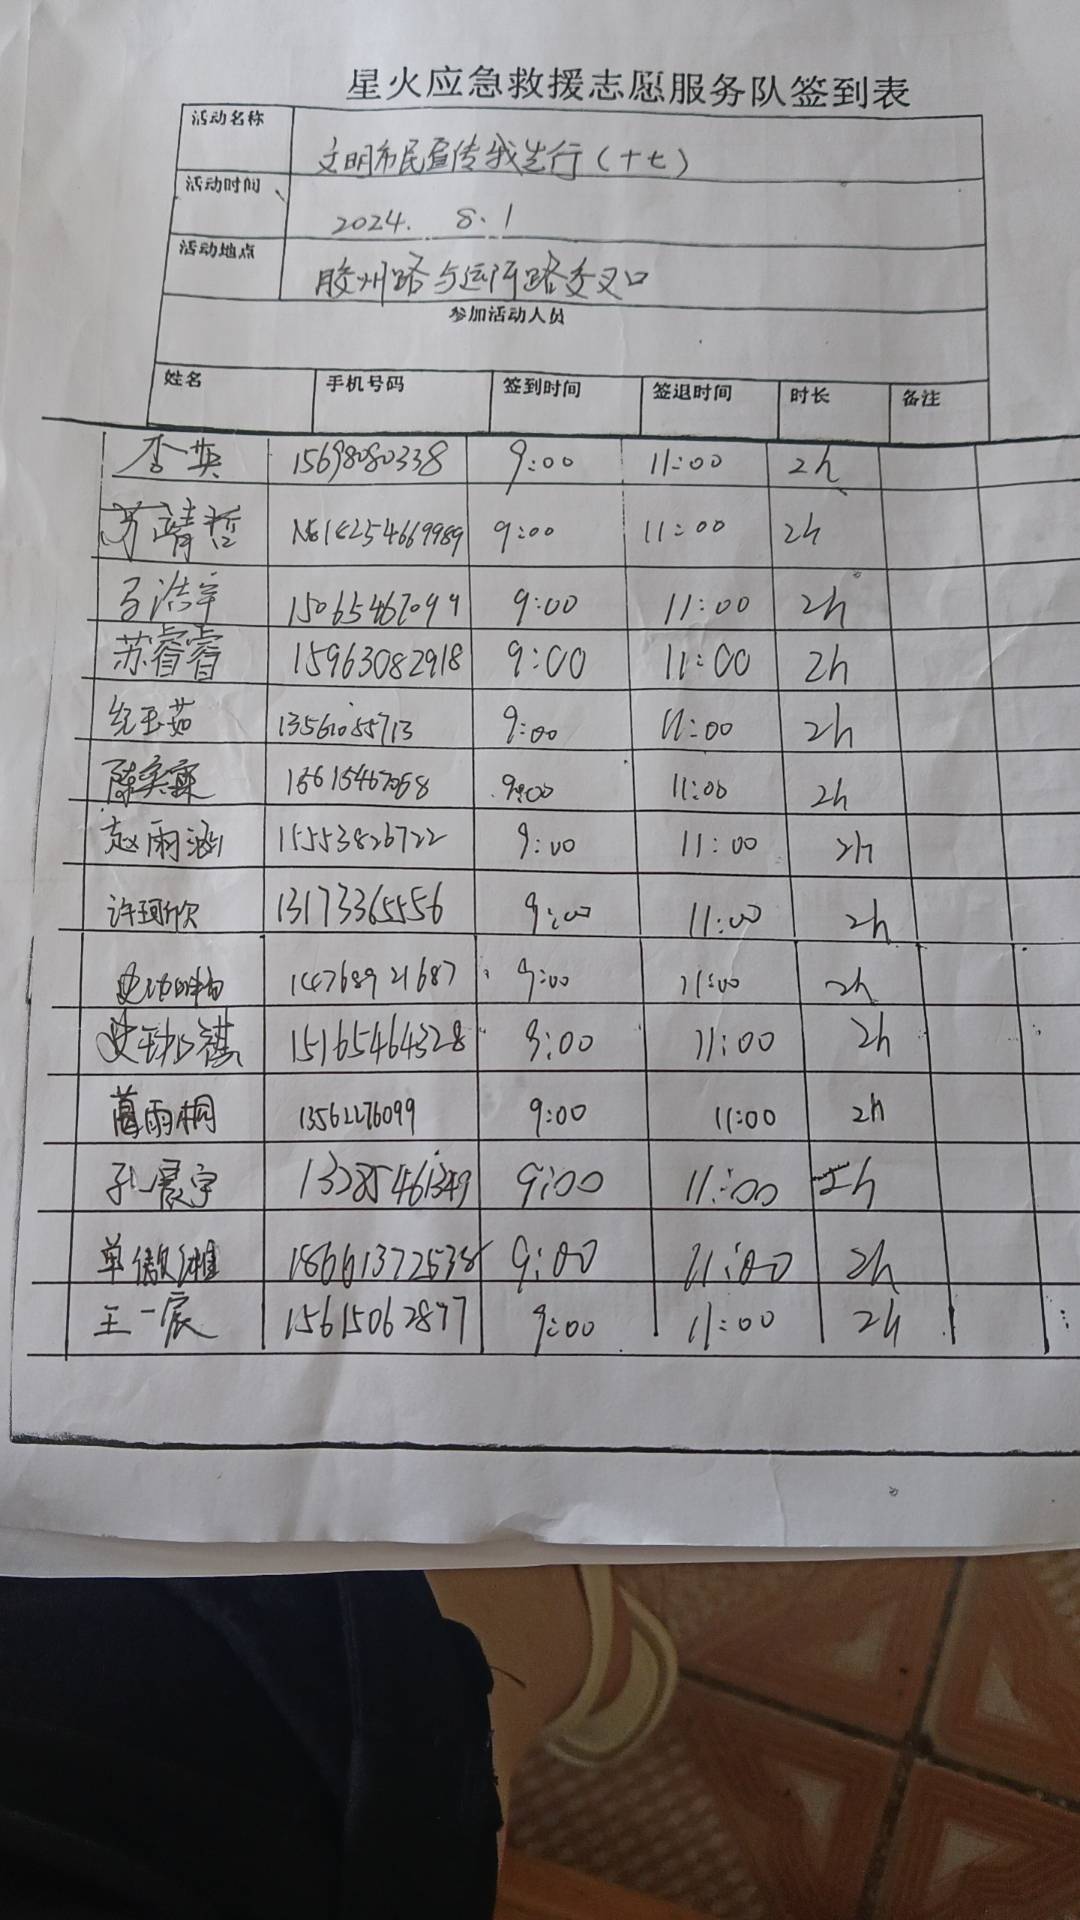 星火应急救援志愿服务队签到表
活动名称 文明市民宣传我先行（十七）
活动时间 2024. 8.1
活动地点 胶州路与运河路交叉口
参加活动人员
姓名 手机号码 签到时间 签退时间 时长 备注
李英 15698080338 9:00 11:00 2h
苏靖哲 9:00 11:00 2h
马浩宇 15065467099 9:00 11:00 2h
苏睿睿 15963082918 9:00 11:00 2h
纪玉茹 13561055713 9:00 11:00 2h
陈奕霖 9:00 11:00 2h
赵雨涵 15553826722 9:00 11:00 2h
许珂欣 13173365556 9:00 11:00 2h
14768921687 9:00 11:00 2h
15165464328 9:00 11:00 2h
葛雨桐 13562276099 9:00 11:00 2h
孔宸宇 13285461349 9:00 11:00 2h
单傲雅 18661372538 9:00 11:00 2h
王一宸 15615062877 9:00 11:00 2h